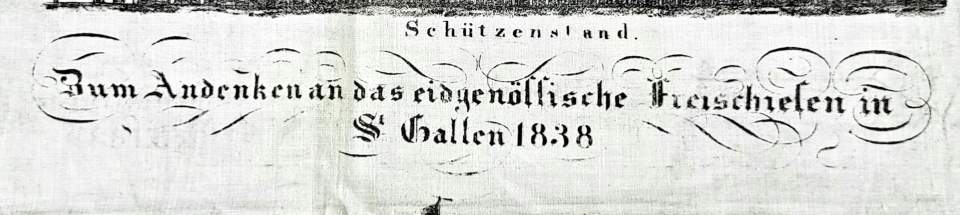 Schützenstand.
Zum Andenken an das eidgenössische Freischiesen in
St Gallen 1838